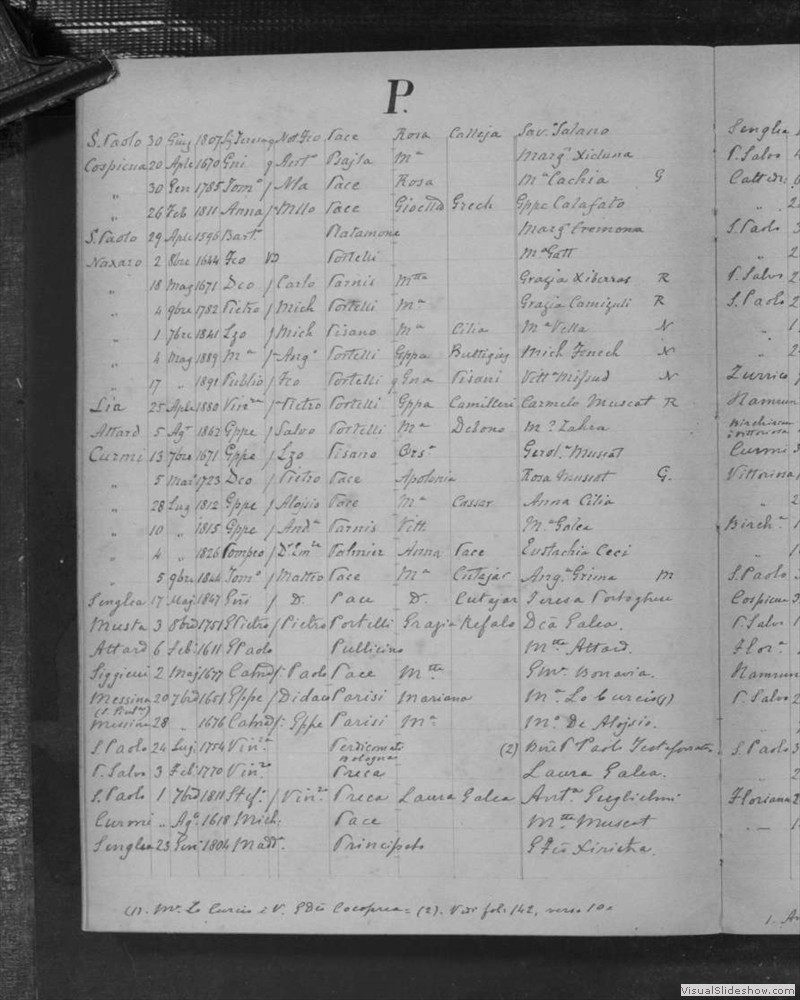 P.
S. Paolo 30 Giug 1807 Not Fco Pace Rosa Calleja Sav. Salano
Cospicua 20 Aple 1670 Gni q Ant. Psajla Ma Marga Xiduna
" 30 Gen 1785 Tomo / Nla Pace Rosa Ma Cachia G
" 26 Feb 1811 Anna / Mllo Pace Gioetta Grech Gppe Calafato
S. Paolo 29 Aple 1596 Bart. Platamone Marga Cremona
Naxaro 2 8bre 1644 Fco Portelli Ma Gatt
" 18 Mag 1671 Dco / Carlo Parnis Mtta Grazia Xiberras R
" 4 9bre 1782 Pietro / Mich Portelli Ma Grazia Camizuli R
" 1 7bre 1841 Lzo / Mich Pisano Ma Cilia Ma Vella N
" 4 Mag 1889 Ma / Ango Portelli Gppa Buttigieg Mich Fenech N
" 17 " 1891 Publio / Fco Portelli Gna Pisani Vitta Mifsud N
Lia 25 Aple 1880 Vinza / Pietro Portelli Gppa Camilleri Carmelo Muscat R
Attard 5 Ago 1862 Gppe / Salvo Portelli Ma Debono Ma Zahra
Curmi 13 7bre 1671 Gppe / Lzo Pisano Orsa Muscat
" 5 Mar 1723 Dco / Pietro Pace Apolonia Rosa Muscat G.
" 28 Lug 1812 Gppe / Alojsio Pace Ma Cassar Anna Cilia
" 10 " 1815 Gppe / Anda Parnis Vitt. Ma Galea
" 4 " 1826 Pompeo / Palmier Anna Pace Eustachia Ceci
" 5 9bre 1844 Tomo / Matteo Pace Ma Cutajar Anga Grima M
Senglea 17 Maj 1847 Gni / D. Pace D. Cutajar Teresa Portoghese
Musta 3 8bre 1751 GPietro / Pietro Portelli Grazia Refalo Dca Galea.
Attard 6 Feb. 1611 GPaolo Pullicino Mtta Attard.
Siggieui 2 Maj 1677 Calcd /: Paolo Pace Mtta Bonavia.
Messina 20 7bre 1651 Gppe / Didaco Parisi Mariana Ma Lo Curcio (1)
Messina 28 " 1676 Calcd /: Gppe Parisi Ma Ma De Alojsio.
S Paolo 24 Lug 1754 Vinzo Perdicomati Bologna (2) Paolo Testaferrata
P. Salvo 3 Feb 1770 Vinzo Preca Laura Galea.
S. Paolo 1 7bre 1811 Stef. / Vinzo Preca Laura Galea Anta Guglielmi
Curmi " Ago 1618 Mich: Pace Mtta Muscat
Senglea 23 Gen 1804 Madd. Principato Xiricha.
(1). Ma Lo Curcio è V. Cocopreca = (2). Vedi fol: 142, verso 10 =
Senglea
P. Salvo
Catted.
S. Paolo
P. Salvo
S. Paolo
Zurrico
Hamrun
Birchircara
Vittoriosa
Curmi
Vittoriosa
Birch.
S. Paolo
Cospicua
P. Salvo
Flora
Hamrun
P. Salvo
S. Paolo
Floriana
VisualSlideshow.com